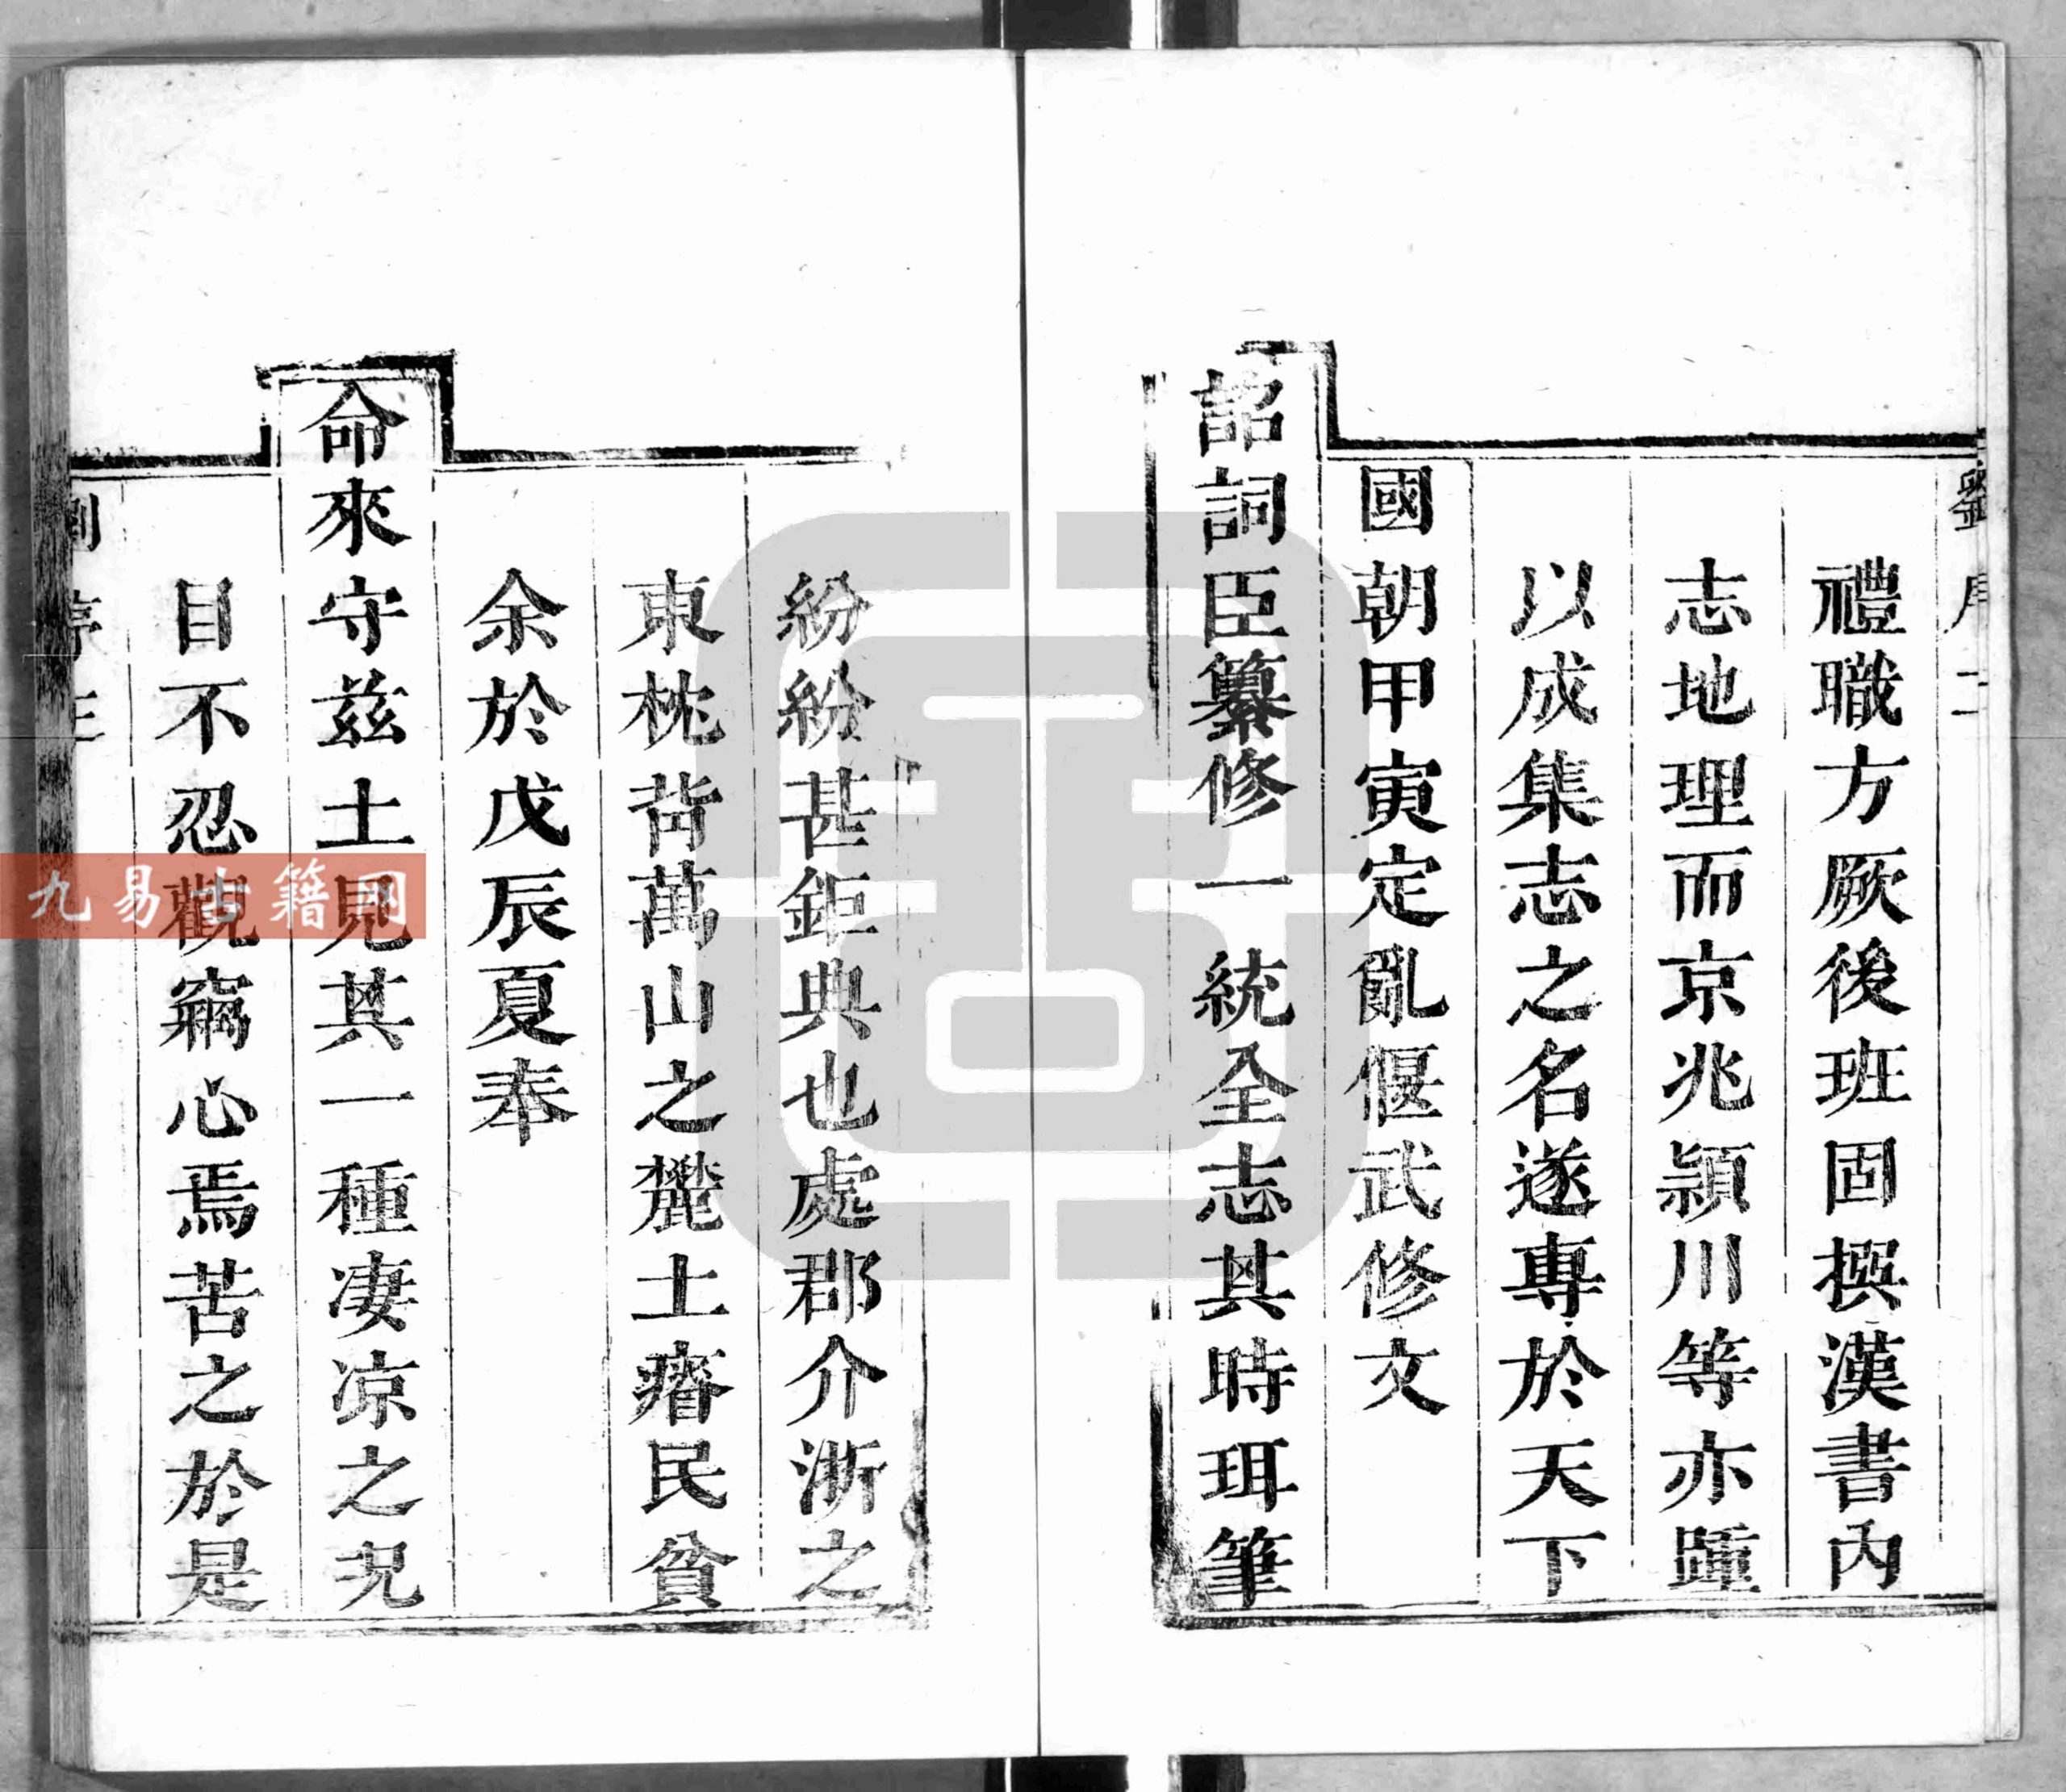 禮職方厥後班固撰漢書內
志地理而京兆潁川等亦踵
以成集志之名遂專於天下
國朝甲寅定亂偃武修文
詔詞臣纂修一統全志其時珥筆
紛紛甚鉅典也處郡介浙之
東枕背萬山之麓土瘠民貧
余於戊辰夏奉
命來守茲土見其一種凄凉之况
目不忍觀竊心焉苦之於是
劉序三
九易古籍网